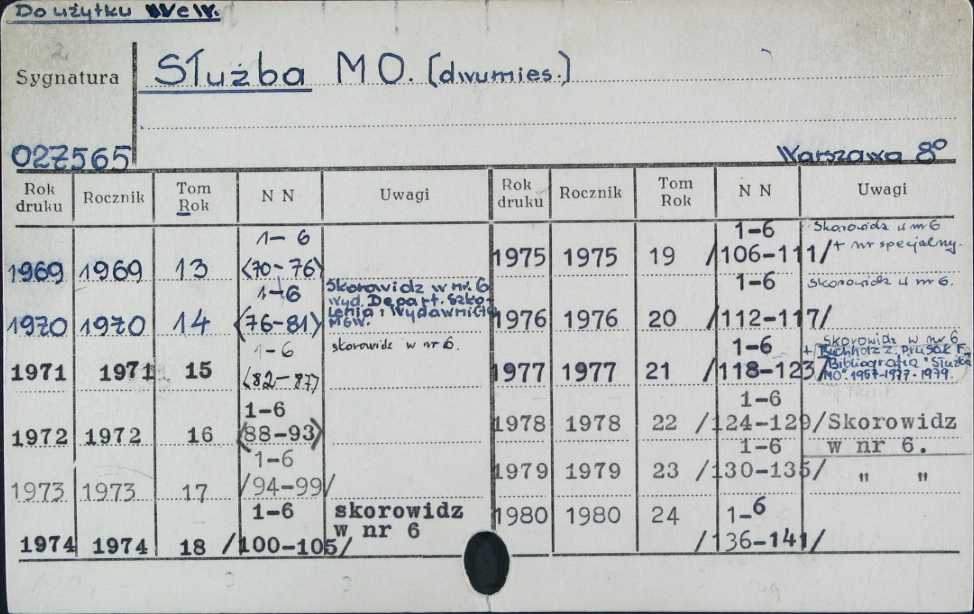 Do użytku WeW.
Sygnatura
Służba MO. (dwumies.)
027565
Warszawa 8°
Rok druku Rocznik Tom Rok N N Uwagi
1969 1969 13 1-6 (70-76)
1970 1970 14 1-6 (76-81) Skorowidz w nr. 6 wyd. Depart. Szkolenia i Wydawnictw MSW.
1971 1971 15 1-6 (82-87) skorowidz w nr 6.
1972 1972 16 1-6 (88-93)
1973 1973 17 1-6 /94-99/
1974 1974 18 1-6 /100-105/ skorowidz w nr 6
Rok druku Rocznik Tom Rok N N Uwagi
1975 1975 19 1-6 /106-111/ Skorowidz w nr 6 + nr specjalny.
1976 1976 20 1-6 /112-117/ skorowidz w nr 6.
1977 1977 21 1-6 /118-123/ Skorowidz w nr 6 + Buchholz Z. Prusak F. Bibliografia "Służba MO" 1957-1977-1979.
1978 1978 22 1-6 /124-129/ Skorowidz w nr 6.
1979 1979 23 1-6 /130-135/ " "
1980 1980 24 1-6 /136-141/